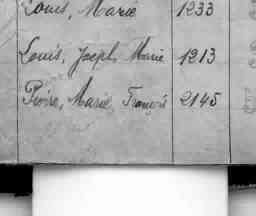 Louis, Marie 1233
Louis, Joseph Marie 1213
Pierre, Marie François 2145